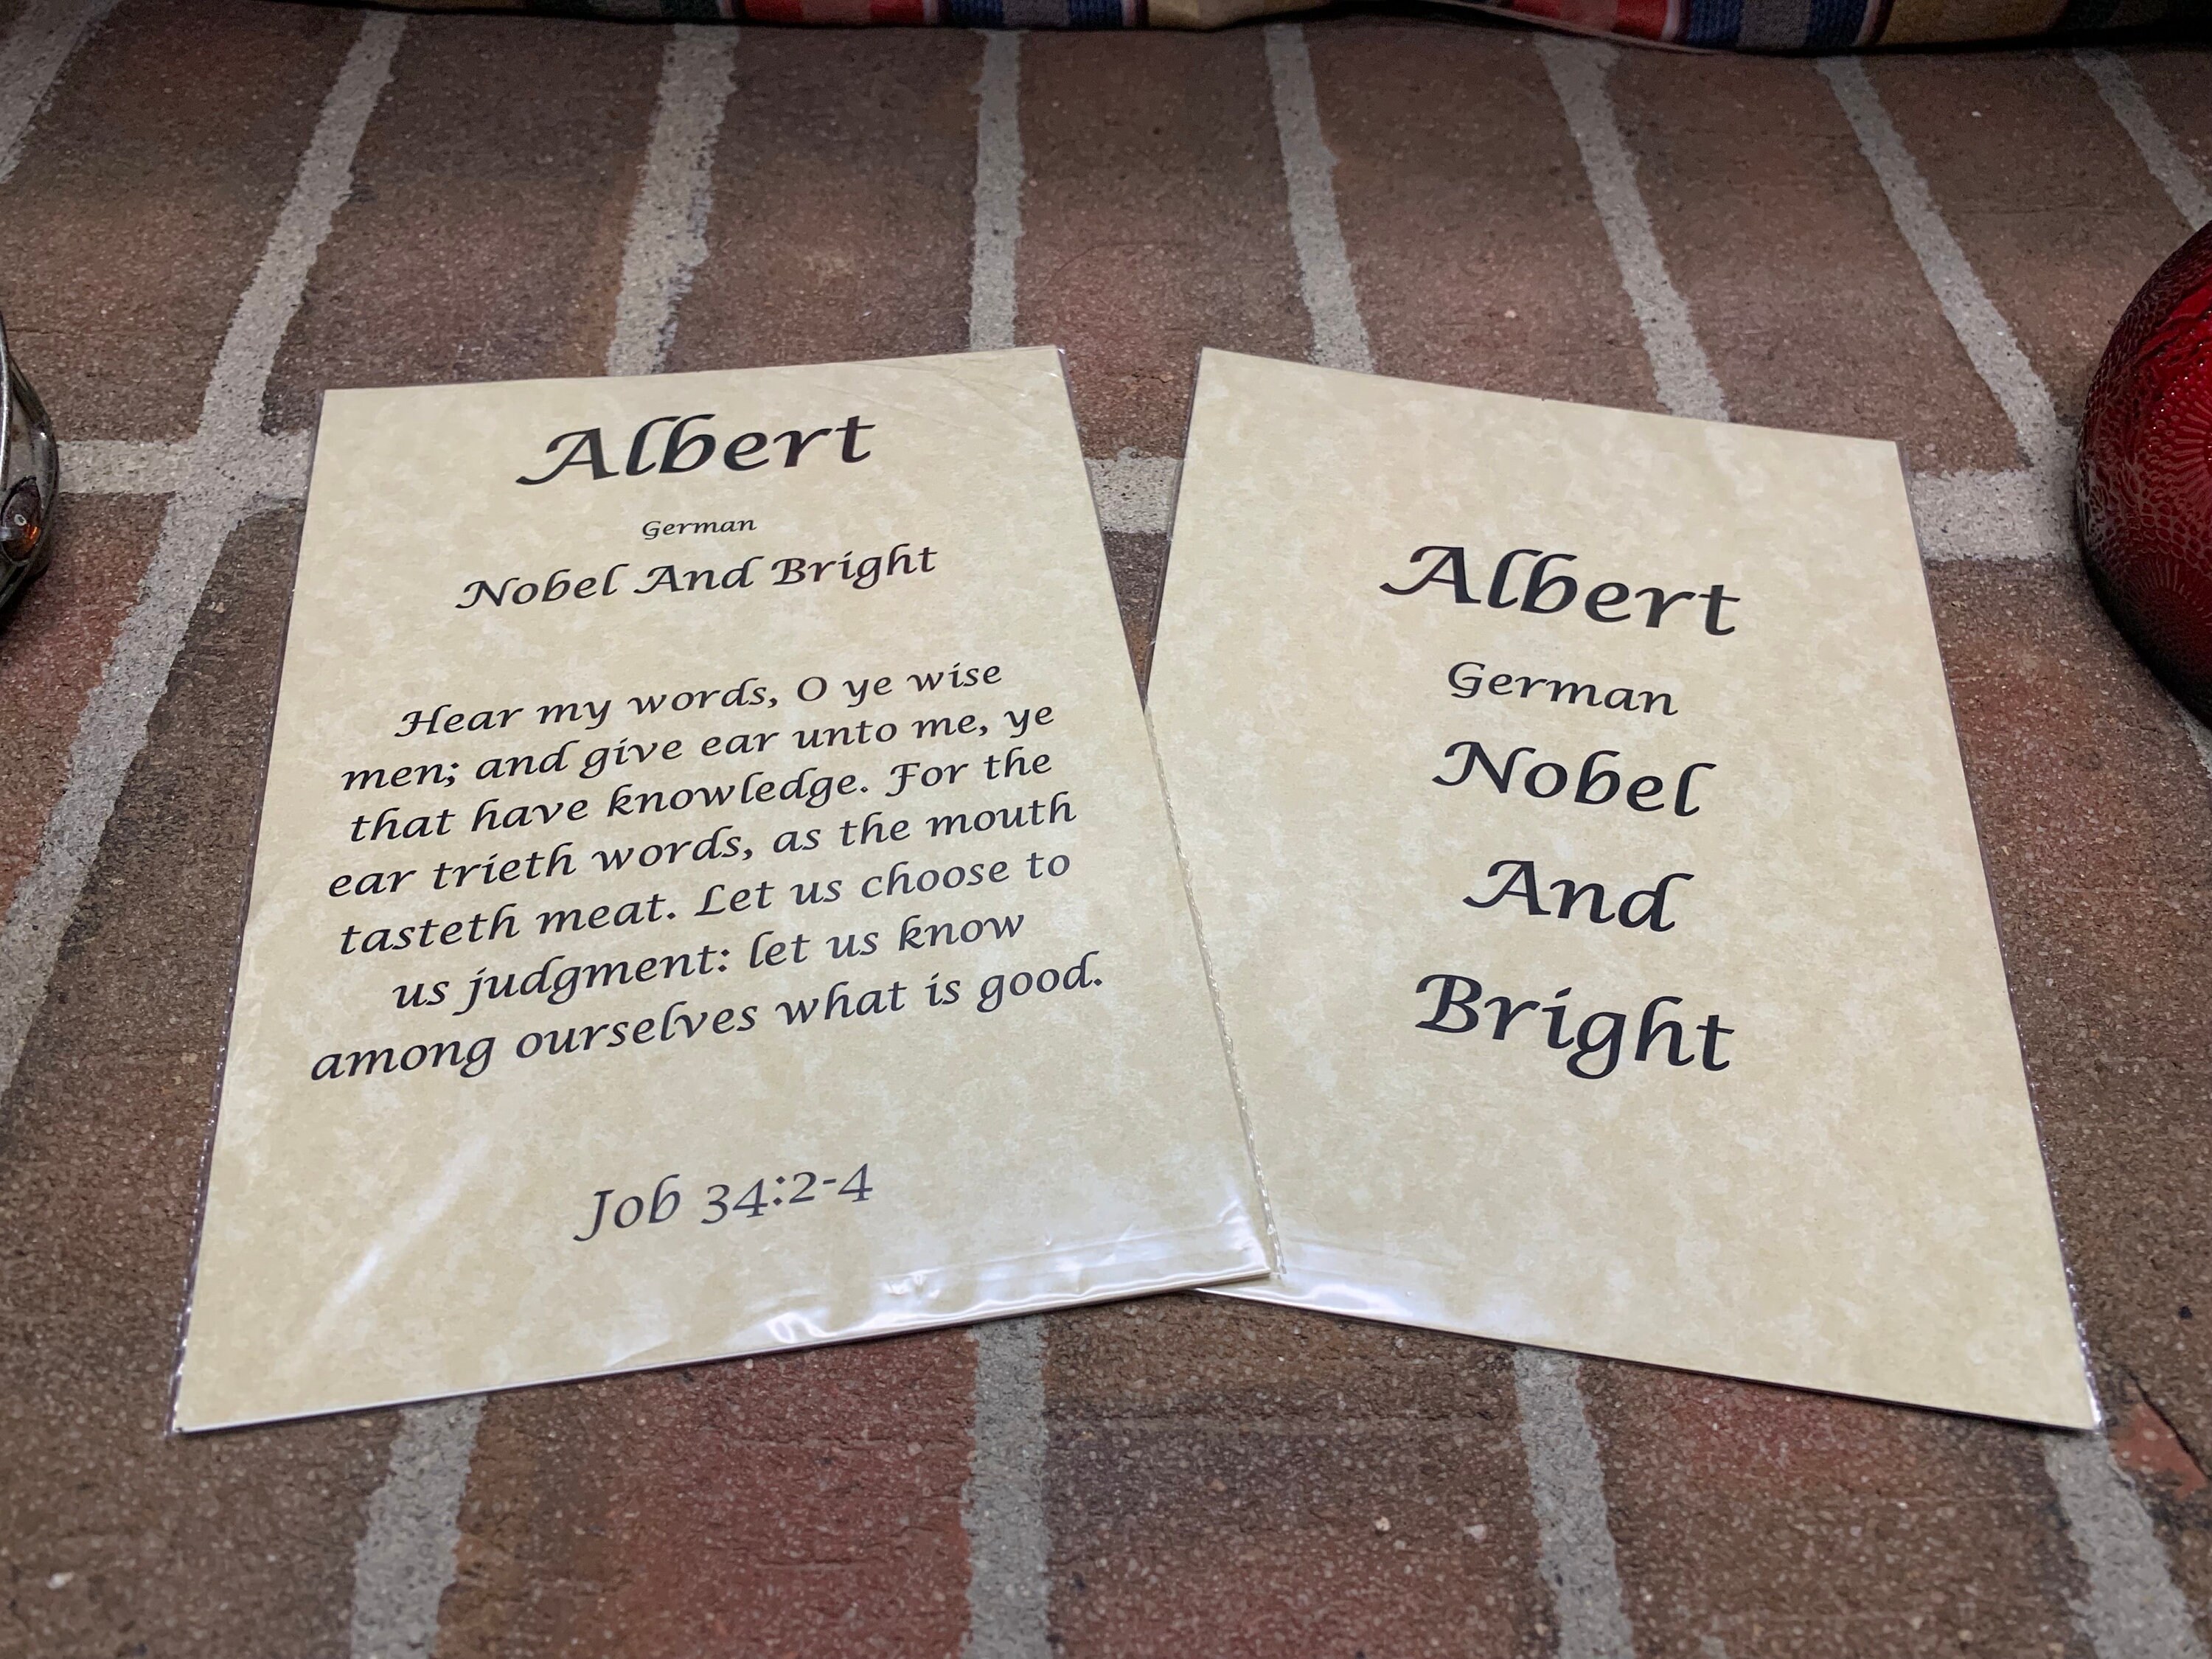 Albert
German
Nobel And Bright
Hear my words, O ye wise
men; and give ear unto me, ye
that have knowledge. For the
ear trieth words, as the mouth
tasteth meat. Let us choose to
us judgment: let us know
among ourselves what is good.
Job 34:2-4
Albert
German
Nobel
And
Bright